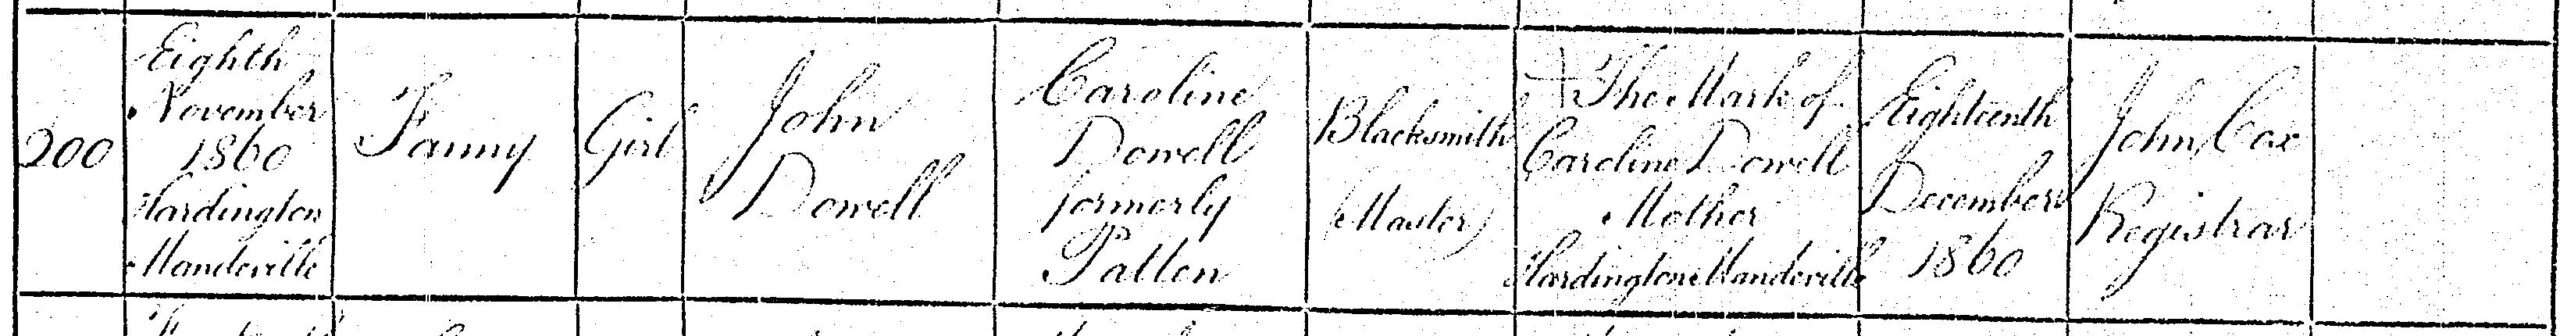 200
Eighth
November
1860
Hardington
Mandeville
Fanny
Girl
John
Dowell
Caroline
Dowell
formerly
Patten
Blacksmith
(Master)
X The Mark of
Caroline Dowell
Mother
Hardington Mandeville
Eighteenth
December
1860
John Cox
Registrar